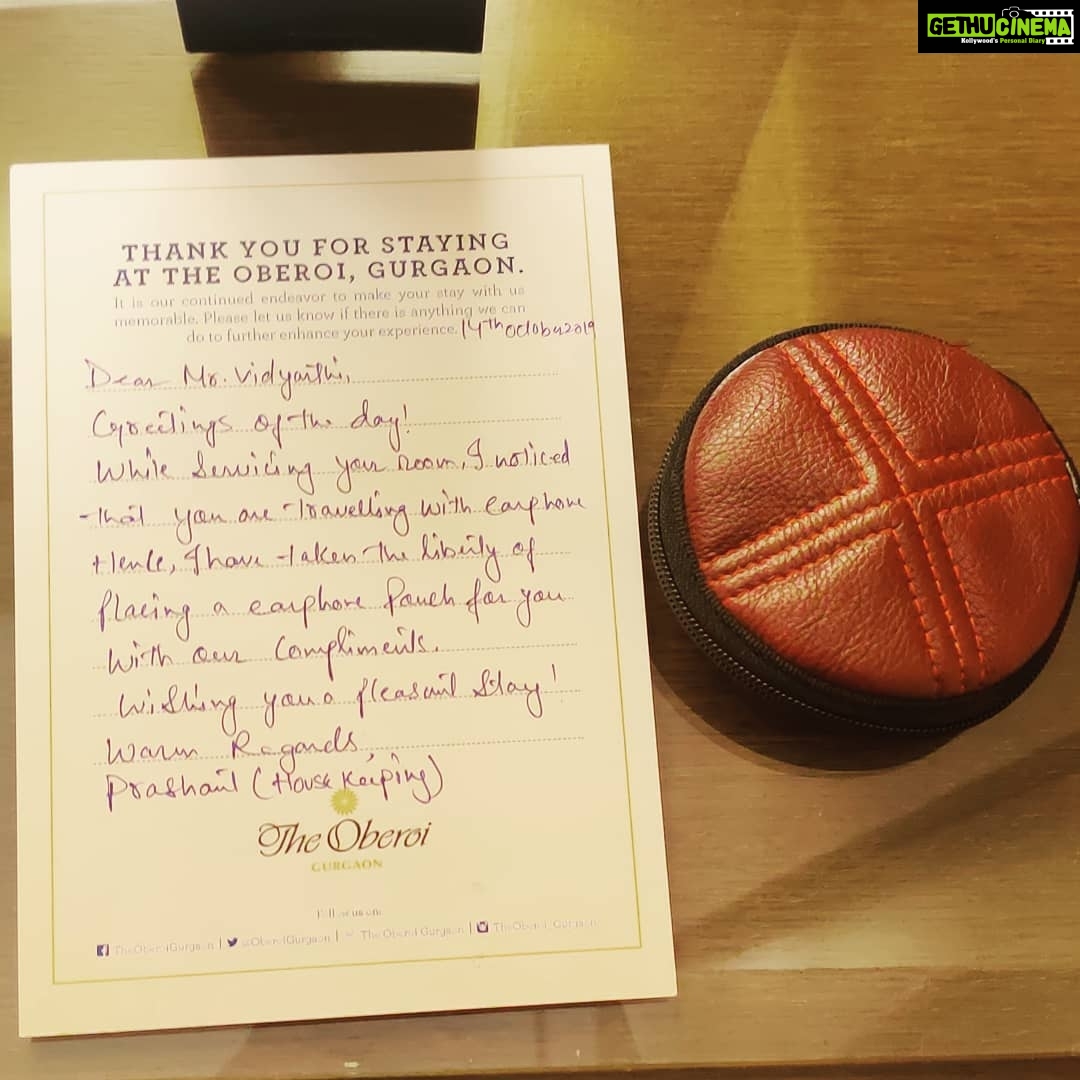 GETHUCINEMA
Kollywood's Personal Diary
THANK YOU FOR STAYING
AT THE OBEROI, GURGAON.
It is our continued endeavor to make your stay with us
memorable. Please let us know if there is anything we can
do to further enhance your experience.
14th October 2019
Dear Mr. Vidyarthi,
Greetings of the day!
While Servicing your room, I noticed
that you are Travelling with earphone
Hence, I have taken the liberty of
placing a earphone Pouch for you
With our Compliments.
Wishing you a pleasant Stay!
Warm Regards,
Prashant (House Keeping)
The Oberoi
GURGAON
Follow us on:
TheOberoiGurgaon | @OberoiGurgaon | The Oberoi Gurgaon | TheOberoi_Gurgaon